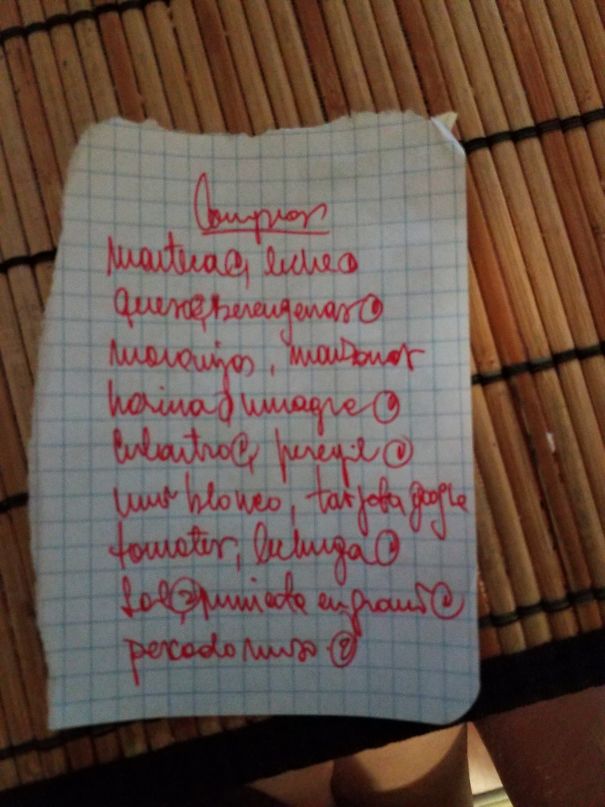 Compras
manteca, leche
queso, berengenas
naranjas, manzanas
harina, vinagre
culantro, peregil
vino blanco, tarjeta google
tomates, lechuga
sal, pimienta en grano
pescado